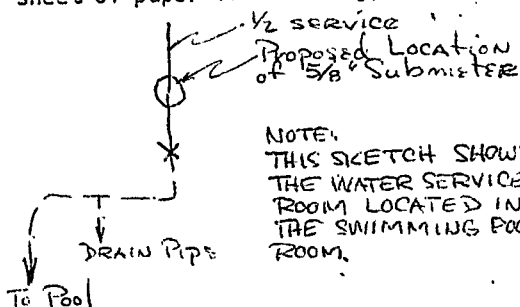 sheet of paper
1/2 SERVICE
Proposed Location
of 5/8" Submeter
NOTE:
THIS SKETCH SHOWS
THE WATER SERVICE
ROOM LOCATED IN
THE SWIMMING POOL
ROOM.
DRAIN PIPE
To Pool